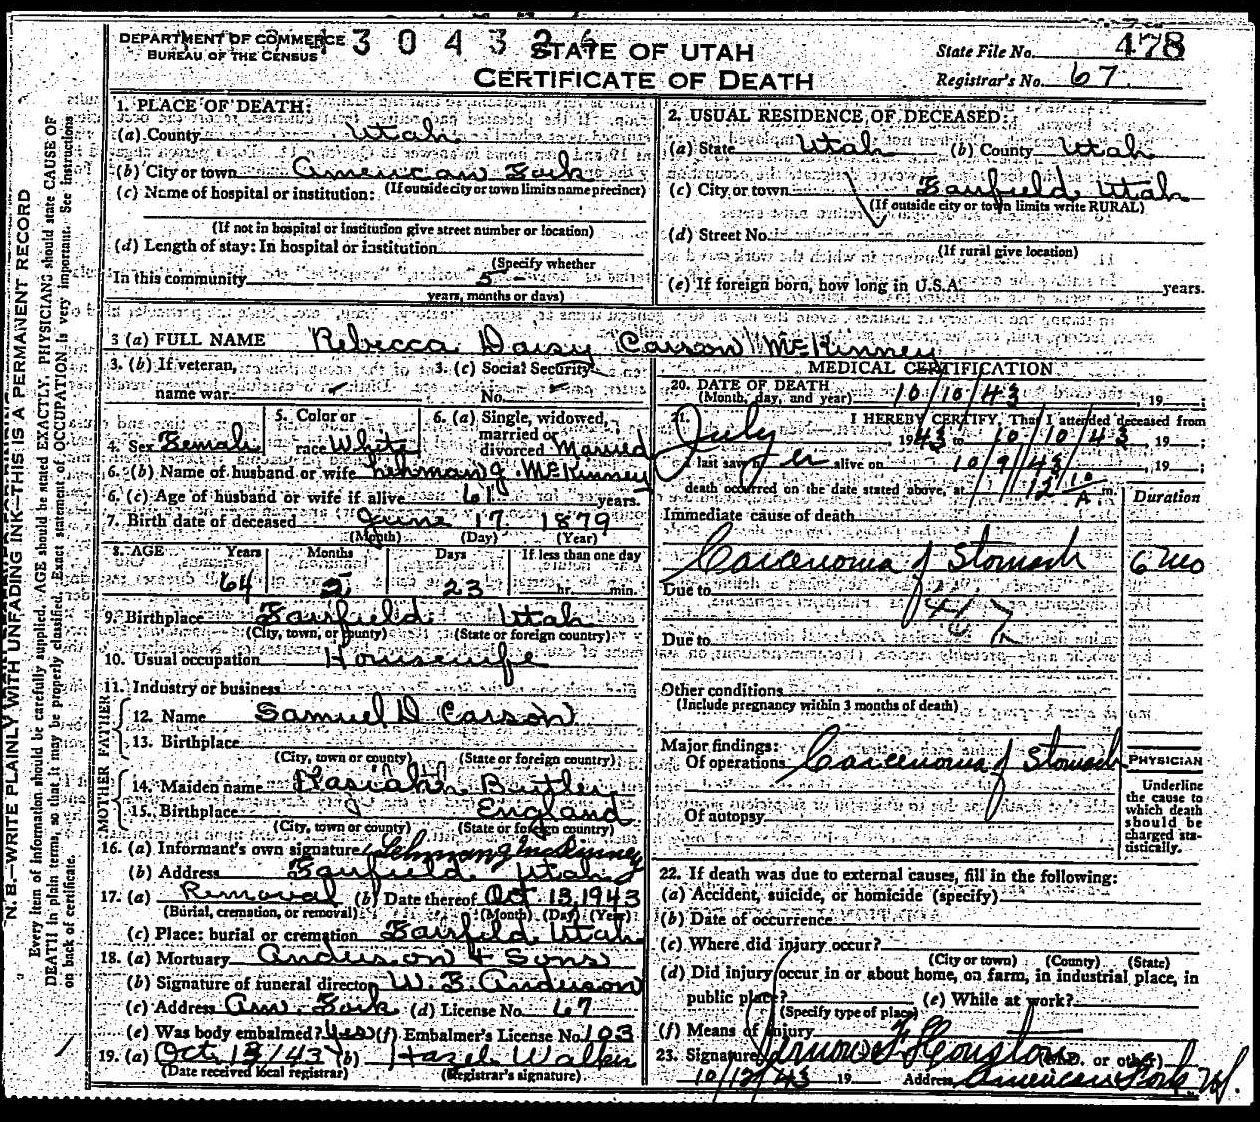 DEPARTMENT OF COMMERCE
BUREAU OF THE CENSUS
304326
STATE OF UTAH
CERTIFICATE OF DEATH
State File No. 478
Registrar's No. 67
N. B.—WRITE PLAINLY WITH UNFADING INK—THIS IS A PERMANENT RECORD
Every item of information should be carefully supplied. AGE should be stated EXACTLY. PHYSICIANS should state CAUSE OF
DEATH in plain terms, so that it may be properly classified. Exact statement of OCCUPATION is very important. See instructions
on back of certificate.
1. PLACE OF DEATH:
(a) County Utah
(b) City or town American Fork
(If outside city or town limits name precinct)
(c) Name of hospital or institution:
(If not in hospital or institution give street number or location)
(d) Length of stay: In hospital or institution
(Specify whether
In this community 5 -
years, months or days)
2. USUAL RESIDENCE OF DECEASED:
(a) State Utah (b) County Utah
(c) City or town Fairfield Utah
(If outside city or town limits write RURAL)
(d) Street No.
(If rural give location)
(e) If foreign born, how long in U.S.A. years.
3 (a) FULL NAME Rebecca Daisy Carson McKinney
3. (b) If veteran, name war
3. (c) Social Security No.
4. Sex Female
5. Color or race White
6. (a) Single, widowed, married or divorced Married
6. (b) Name of husband or wife Lehman J. McKinney
6. (c) Age of husband or wife if alive 61 years.
7. Birth date of deceased June 17 1879
(Month) (Day) (Year)
8. AGE Years Months Days If less than one day
64 23 hr. min.
9. Birthplace Fairfield Utah
(City, town, or county) (State or foreign country)
10. Usual occupation Housewife
11. Industry or business
FATHER
12. Name Samuel D Carson
13. Birthplace
(City, town or county) (State or foreign country)
MOTHER
14. Maiden name Butler
15. Birthplace England
(City, town or county) (State or foreign country)
16. (a) Informant's own signature Lehman J McKinney
(b) Address Fairfield Utah
17. (a) Removal (b) Date thereof Oct 13, 1943
(Burial, cremation, or removal) (Month) (Day) (Year)
(c) Place: burial or cremation Fairfield Utah
18. (a) Mortuary Anderson & Sons
(b) Signature of funeral director W. B. Anderson
(c) Address Am. Fork (d) License No. 67
(e) Was body embalmed? Yes (f) Embalmer's License No. 103
19. (a) Oct 13/43 (b) Hazel Walker
(Date received local registrar) (Registrar's signature)
MEDICAL CERTIFICATION
20. DATE OF DEATH
(Month, day, and year) 10/10/43, 19 ;
21. I HEREBY CERTIFY, That I attended deceased from
July 1943 to 10/10/43, 19 ;
I last saw her alive on 10/9/43, 19 ;
death occurred on the date stated above, at 12 10 A m.
Duration
Immediate cause of death
Carcenoma of Stomach 6 mo
Due to
Due to
Other conditions
(Include pregnancy within 3 months of death)
Major findings:
Of operations Carcenoma of Stomach
Of autopsy
PHYSICIAN
Underline
the cause to
which death
should be
charged sta-
tistically.
22. If death was due to external causes, fill in the following:
(a) Accident, suicide, or homicide (specify)
(b) Date of occurrence
(c) Where did injury occur?
(City or town) (County) (State)
(d) Did injury occur in or about home, on farm, in industrial place, in
public place? (e) While at work?
(Specify type of place)
(f) Means of injury
23. Signature Houston (M.D. or other)
10/12/43 19 Address American Fork Ut.